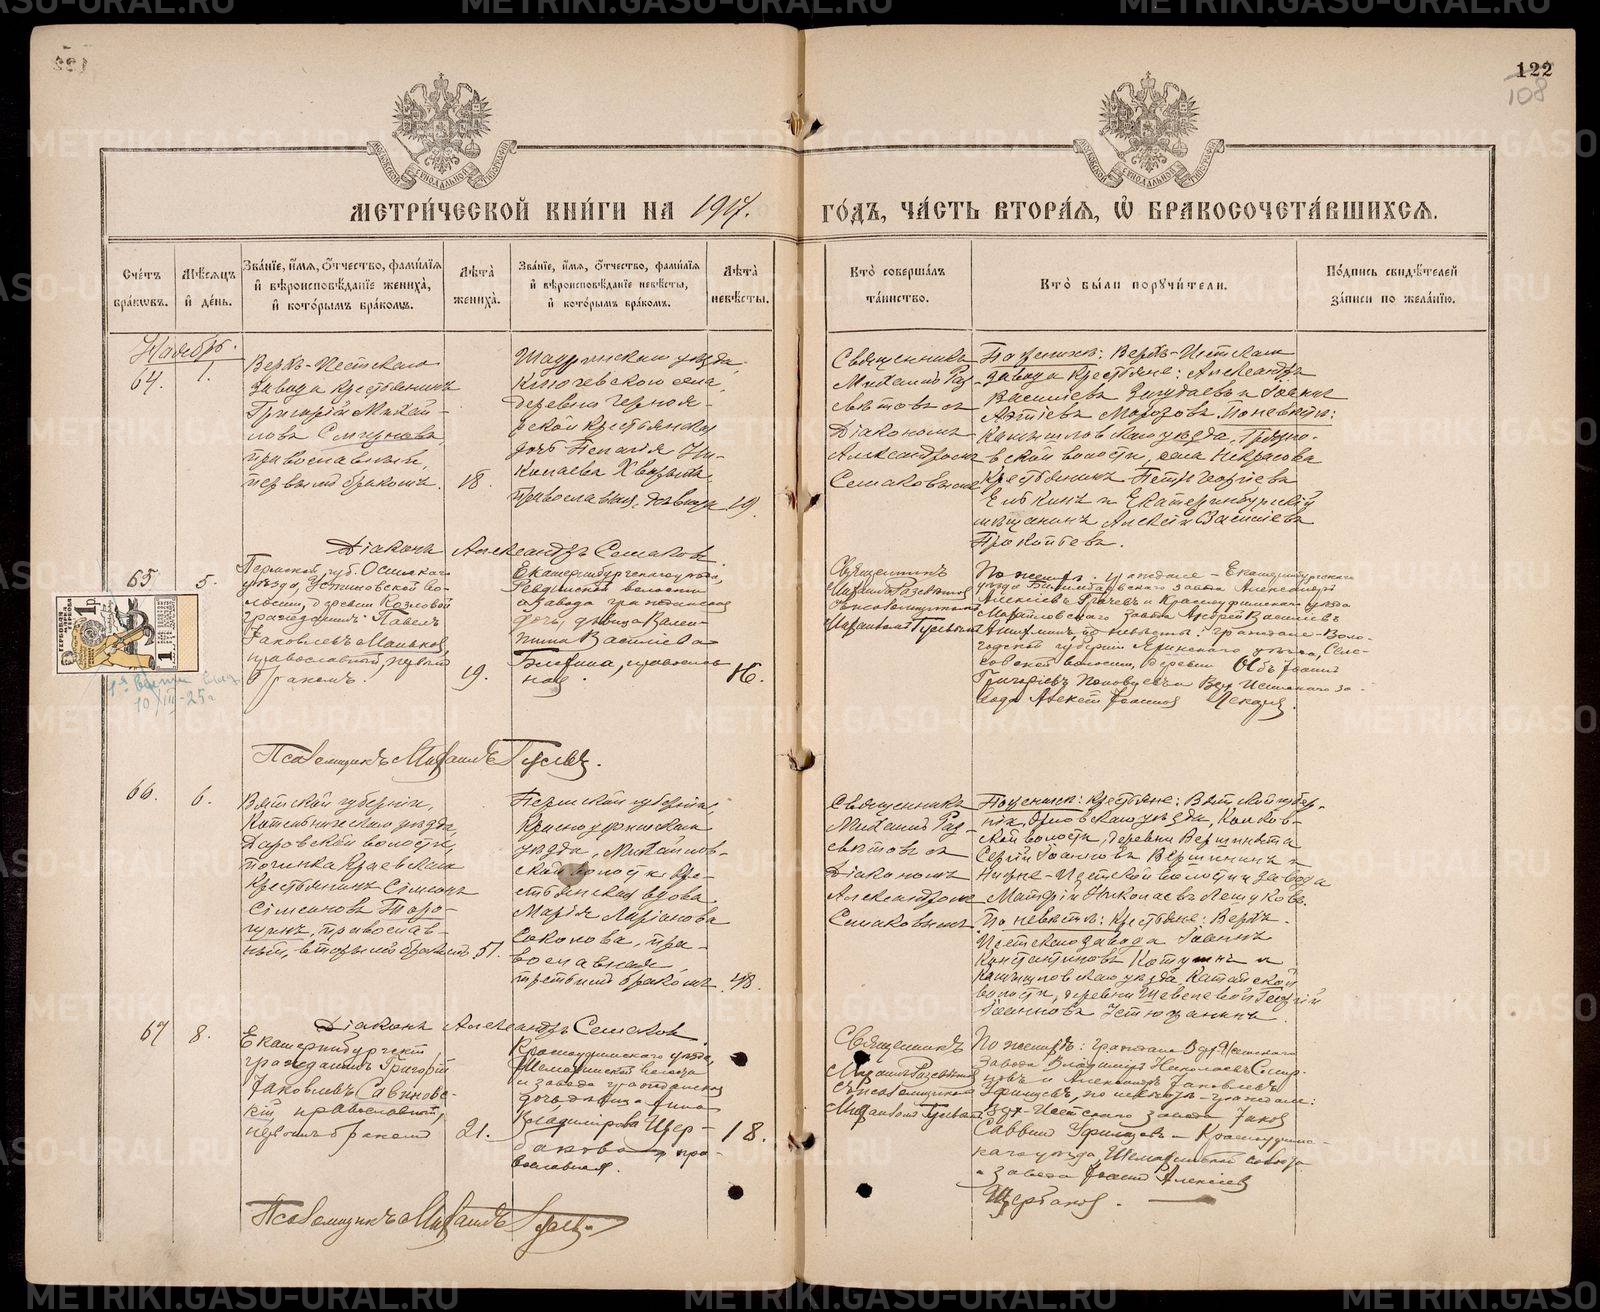 122
108
МЕТРИ́ЧЕСКОЙ КНИ́ГИ НА 1917.
ГО́ДЪ, ЧА́СТЬ ВТОРА́Я, Ѿ БРАКОСОЧЕТА́ВШИХСЯ.
Сче́тъ бра́ковъ.
Мѣ́сяцъ и҆ де́нь.
Зва́нїе, и҆́мя, ѻ҆́тчество, фами́лїя
и҆ вѣроисповѣ́данїе жениха̀,
и҆ кото́рымъ бра́комъ.
Лѣ́та жениха̀.
Зва́нїе, и҆́мя, ѻ҆́тчество, фами́лїя
и҆ вѣроисповѣ́данїе невѣ́сты,
и҆ кото́рымъ бра́комъ.
Лѣ́та невѣ́сты.
Кто̀ соверша́лъ
та́инство.
Кто̀ бы́ли порꙋчи́тели.
По́дпись свидѣ́телей
за́писи по жела́нїю.
Ноябрь.
64.
1.
Верхъ-Исетскаго
завода крестьянинъ
Григорій Михай-
ловъ Смирновъ,
православный,
первымъ бракомъ.
18.
Шадринскаго уѣзда,
Ключевского села,
деревни Черноя-
рской крестьянская
дочь Пелагія Ни-
колаева
православная, дѣвица
19.
Священникъ
Михаилъ Раз-
свѣтовъ съ
Діакономъ
Александромъ
Семаковымъ
По женихѣ: Верхъ-Исетскаго
завода крестьяне: Александръ
Васильевъ и Іоаннъ
Морозовъ. По невѣстѣ:
Камышловскаго уѣзда,
волости, села Некрасова
крестьянинъ Петръ Георгіевъ
Елькинъ и Екатеринбургскій
мѣщанинъ Алексѣй Васильевъ
Прокопьевъ.
Діаконъ Александръ Семаковъ.
65
5.
Пермской губ. Осинскаго
уѣзда, Устиновской во-
лости, деревни Козловой
гражданинъ Павелъ
Іаковлевъ Маньковъ,
православный, первымъ
бракомъ.
19.
Екатеринбургскаго уѣзда,
Ревдинской волости
и завода гражданская
дочь, дѣвица Вален-
тина Васильева
православ-
ная.
16.
Священникъ
Михаилъ Разсвѣтовъ
съ псаломщикомъ
Михаиломъ Гуслевымъ
По женихѣ: граждане - Екатеринбургскаго
уѣзда завода Александръ
Алексѣевъ и Красноуфимскаго уѣзда
Михайловскаго завода Андрей Васильевъ
по невѣстѣ: граждане - Воло-
годской губерніи Яренскаго уѣзда,
волости, деревни Іоаннъ
Григорьевъ Поповцевъ и Верх-Исетскаго за-
вода Алексѣй Іоанновъ
1 р.
10/III-25г
Псаломщикъ Михаилъ Гуслевъ.
66.
6.
Вятской губерніи,
Котельническаго уѣзда,
Даровской волости,
починка
крестьянинъ Симеонъ
Симеоновъ Торо-
пунъ, православ-
ный, вторымъ бракомъ.
51.
Пермской губерніи,
Красноуфимскаго
уѣзда, Михайлов-
ской волости кре-
стьянская вдова
Марія Ларіонова
Соколова, пра-
вославная
третьимъ бракомъ
48.
Священникъ
Михаилъ Раз-
свѣтовъ съ
Діакономъ
Александромъ
Семаковымъ
По женихѣ: крестьяне: Вятской губер-
ніи, Орловскаго уѣзда,
ской волости, деревни Вершината
Сергій Іоанновъ Вершининъ и
Нижне-Исетской волости и завода
Матѳій Николаевъ
По невѣстѣ: крестьяне: Верхъ-
Исетскаго завода Іоаннъ
Константиновъ и
Камышловскаго уѣзда Катайской
волости, деревни Шевелевой Георгій
Іоанновъ Устюжанинъ.
Діаконъ Александръ Семаковъ
67
8.
Екатеринбургскій
гражданинъ Григорій
Іаковлевъ Савинов-
скій, православный,
первымъ бракомъ
21.
Красноуфимскаго уѣзда,
Шемахинской волости
и завода гражданская
дочь дѣвица Анна
Владимірова Щер-
бакова, пра-
вославная.
18.
Священникъ
Михаилъ Разсвѣтовъ
съ псаломщикомъ
Михаиломъ Гуслевымъ
По женихѣ: граждане Верх-Исетскаго
завода Владиміръ Николаевъ Смир-
новъ и Александръ Іаковлевъ
по невѣстѣ - граждане:
Верх-Исетскаго завода Іаковъ
Саввинъ - Красноуфимс-
каго уѣзда, Шемахинской волости
и завода Іоаннъ Алексѣевъ
Щербаковъ.
Псаломщикъ Михаилъ Гуслевъ.
METRIKI.GASO-URAL.RU